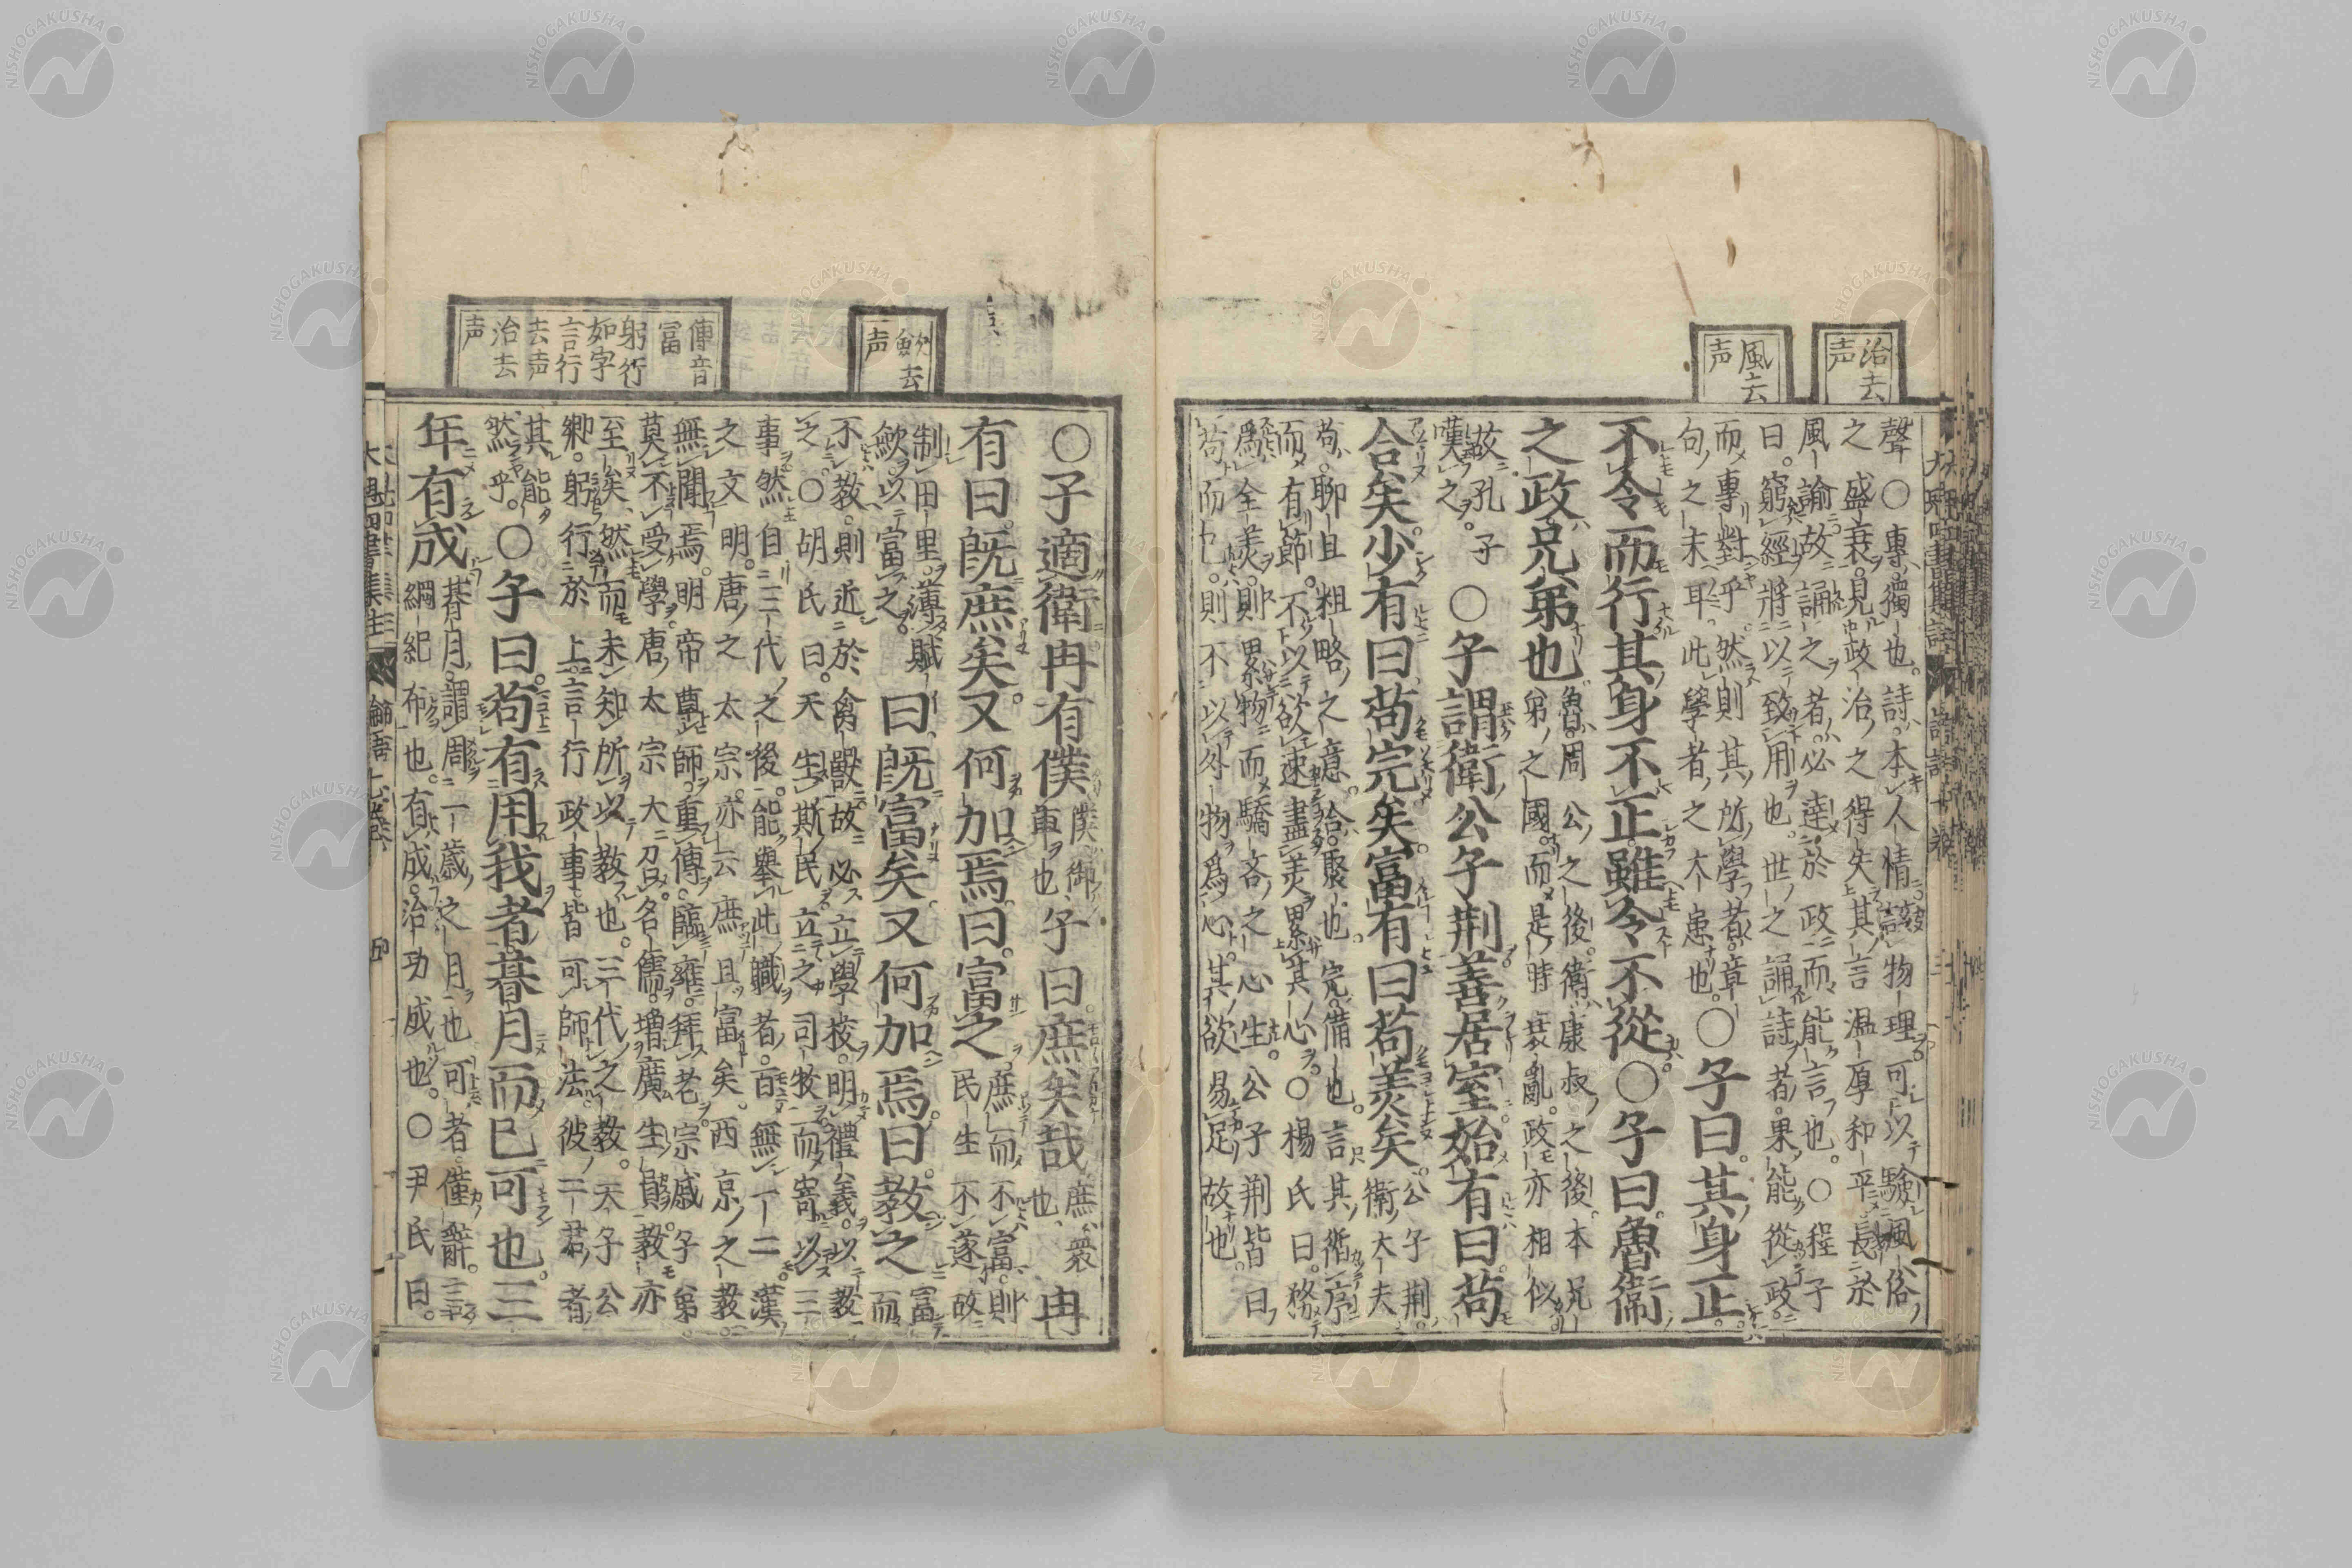 治去
声
風去
声
聲○專獨也。詩本人情該物理可以驗風俗
之盛衰。見政治之得失其言温厚和平長於
風諭故誦之者必達於政而能言也。○程子
曰。窮經將以致用也。世之誦詩者果能從政
而專對乎。然則其所學者。章
句之末耳。此學者之大患也。
○子曰。其身正。
不令而行其身不正雖令不從○子曰魯衛
之政兄弟也
魯周公之後。衛康叔之後。本兄
弟之國。而是時衰亂。政亦相似
故孔子
嘆之。
○子謂衛公子荆善居室始有曰苟
合矣少有曰苟完矣富有曰苟美矣
公子荆。
衛大夫
苟聊且粗略之意。合聚也。完備也。言其循序
而有節。不以欲速盡美累其心。○楊氏曰。務
爲全美。則累物而驕吝之心生。公子荆皆曰
苟而已。則不以外物爲心。其欲易足故也。
去
声
傳音
富
躬行
如字
言行
去声
治去
声
○子適衛冉有僕
僕御
車也
子曰庶矣哉
庶衆
也
冉
有曰。既庶矣。又何加焉。曰。富之
庶而不富。則
民生不遂故
制田里。薄賦
歛以富之。
曰既富矣。又何加焉。曰。教之
富
而
不教。則近於禽獸故必立學校。明禮義。以教
之。○胡氏曰。天生斯民立之司牧而寄以三
事然自三代之後。能舉此職者。百無一二。漢
之文明。唐之太宗。亦云庶且富矣。西京之教
無聞焉。明帝尊師重傳。臨雍拜老宗戚子弟。
莫不受學唐太宗大召名儒。增廣生員。教亦
至矣。然而未知所以教也。三代之教。天子公
卿。躬行於上言行政事皆可師法彼二君者
其能
然乎。
○子曰。苟有用我者。朞月而已可也。三
年有成
朞月。謂周一歳之月也可者。僅辭。
綱紀布也。有成。治功成也。○尹氏曰。